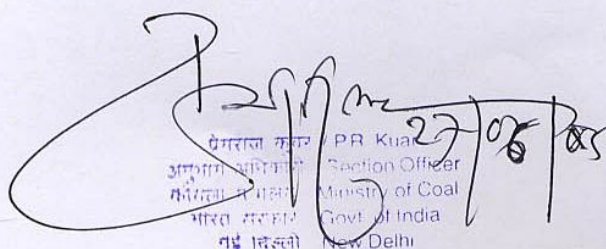 27/06/05
प्रेमराज कुवर / PR Kuar
अनुभाग अधिकारी Section Officer
कोयला मंत्रालय Ministry of Coal
भारत सरकार Govt. of India
नई दिल्ली New Delhi